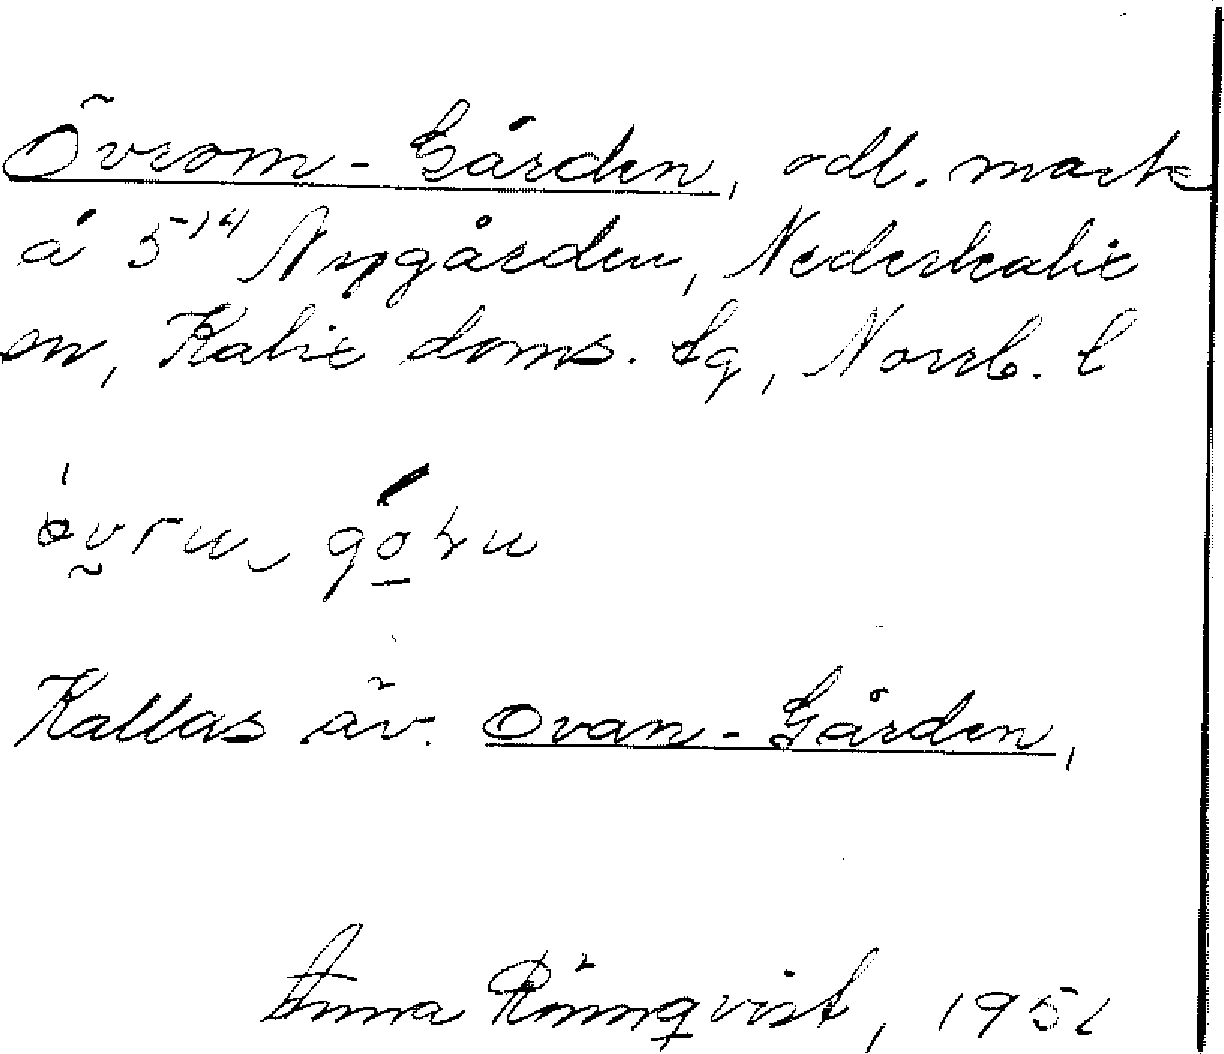 Övrom-Gården, odl. mark
å 5¹⁴ Nygården, Nederkalix
sn, Kalix doms. tg, Norrb. l
Kallas äv. Ovan-Gården,
Anna Rönnqvist, 1951